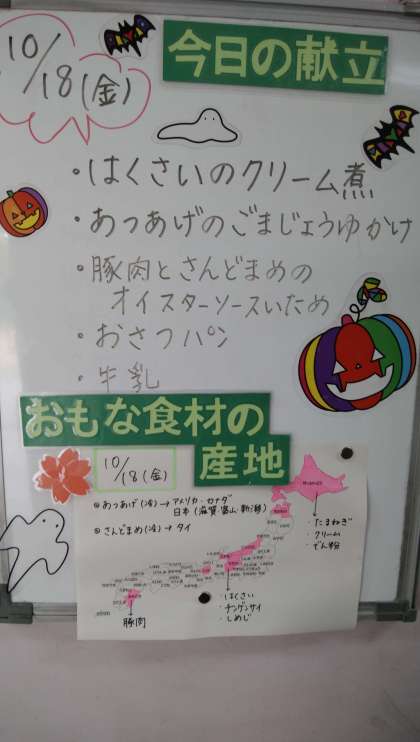 10/18(金)
今日の献立
・はくさいのクリーム煮
・あつあげのごまじょうゆかけ
・豚肉とさんどまめの
オイスターソースいため
・おさつパン
・牛乳
おもな食材の
産地
10/18(金)
あつあげ(冷)→アメリカ・カナダ
日本(滋賀・富山・新潟)
さんどまめ(冷)→タイ
・たまねぎ
・クリーム
・でん粉
・はくさい
・チンゲンサイ
・しめじ
豚肉